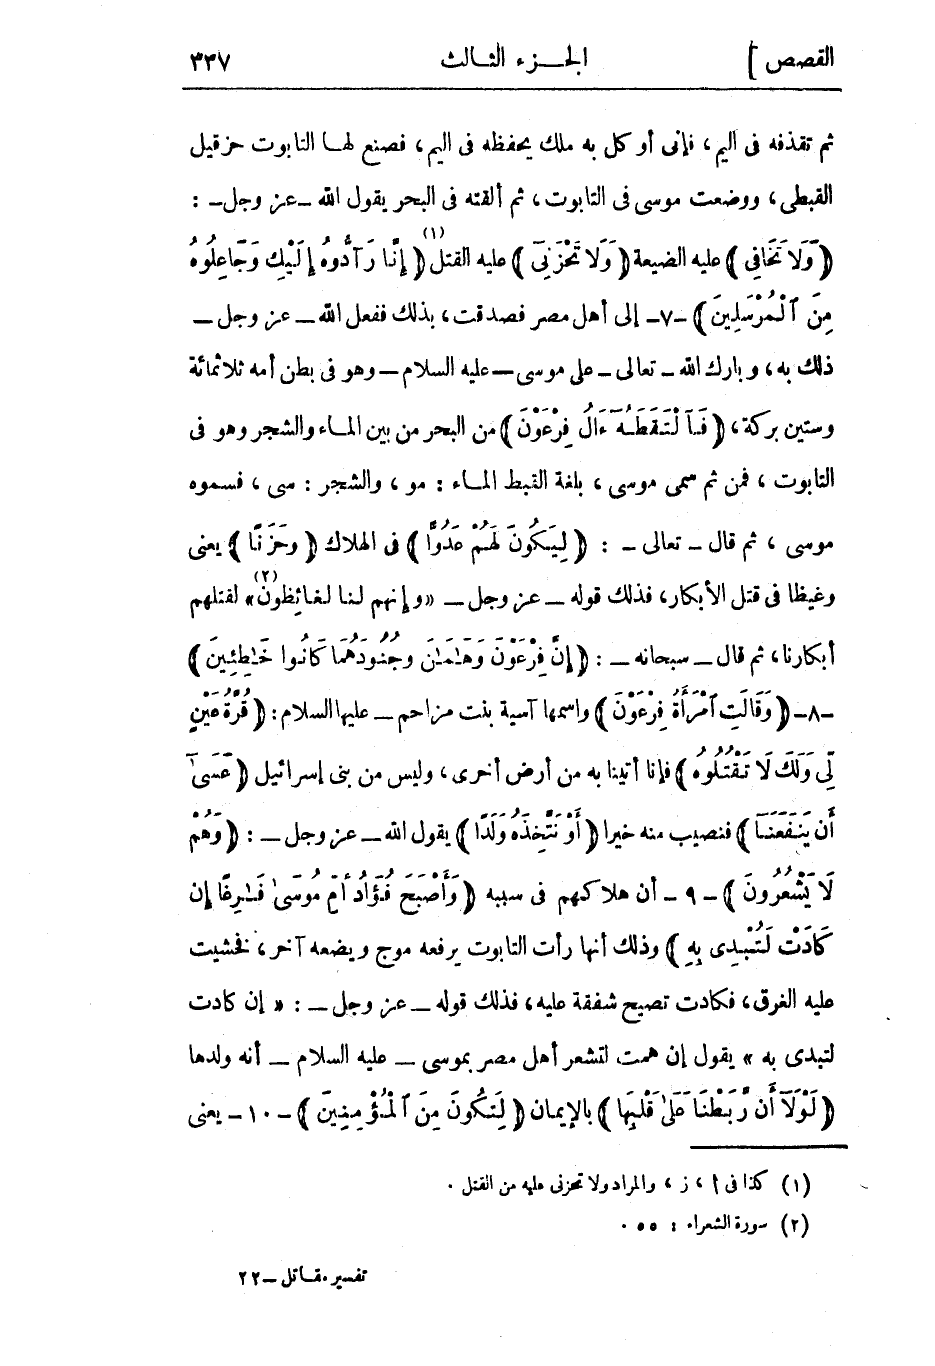 القصص] الجزء الثالث ٣٣٧
ثم تقذفه فى اليم، فإنى أوكل به ملك يحفظه فى اليم، فصنع لها التابوت حزقيل
القبطى، ووضعت موسى فى التابوت، ثم ألقته فى البحر يقول الله -عز وجل- :
﴿وَلَا تَخَافِي﴾ عليه الضيعة ﴿وَلَا تَحْزَنِىٓ﴾ عليه القتل(١) ﴿إِنَّا رَآدُّوهُ إِلَيْكِ وَجَاعِلُوهُ
مِنَ ٱلْمُرْسَلِينَ﴾ -٧- إلى أهل مصر فصدقت، بذلك ففعل الله - عز وجل -
ذلك به، وبارك الله - تعالى - على موسى - عليه السلام - وهو فى بطن أمه ثلاثمائة
وستين بركة، ﴿فَٱلْتَقَطَهُۥٓ ءَالُ فِرْعَوْنَ﴾ من البحر من بين الماء والشجر وهو فى
التابوت ، فمن ثم سمى موسى ، بلغة القبط الماء : مو ، والشجر : سى ، فسموه
موسى ، ثم قال - تعالى - : ﴿لِيَكُونَ لَهُمْ عَدُوًّا﴾ فى الهلاك ﴿وَحَزَنًا﴾ يعنى
وغيظا فى قتل الأبكار، فذلك قوله - عز وجل - «وإنهم لنا لغائظون(٢)» لقتلهم
أبكارنا، ثم قال - سبحانه - : ﴿إِنَّ فِرْعَوْنَ وَهَٰمَٰنَ وَجُنُودَهُمَا كَانُوا خَٰطِئِينَ﴾
-٨- ﴿وَقَالَتِ ٱمْرَأَةُ فِرْعَوْنَ﴾ واسمها آسية بنت مزاحم - عليها السلام: ﴿قُرَّةُ عَيْنٍ
لِّى وَلَكَ لَا تَقْتُلُوهُ﴾ فإنا أتينا به من أرض أخرى، وليس من بنى إسرائيل ﴿عَسَىٰٓ
أَن يَنفَعَنَآ﴾ فنصيب منه خيرا ﴿أَوْ نَتَّخِذَهُۥ وَلَدًا﴾ يقول الله - عز وجل - : ﴿وَهُمْ
لَا يَشْعُرُونَ﴾ - ٩ - أن هلاكهم فى سببه ﴿وَأَصْبَحَ فُؤَادُ أُمِّ مُوسَىٰ فَٰرِغًا إِن
كَادَتْ لَتُبْدِى بِهِ﴾ وذلك أنها رأت التابوت يرفعه موج ويضعه آخر، فخشيت
عليه الغرق، فكادت تصيح شفقة عليه، فذلك قوله - عز وجل - : « إن كادت
لتبدى به » يقول إن همت لتشعر أهل مصر بموسى - عليه السلام - أنه ولدها
﴿لَوْلَآ أَن رَّبَطْنَا عَلَىٰ قَلْبِهَا﴾ بالإيمان ﴿لِتَكُونَ مِنَ ٱلْمُؤْمِنِينَ﴾ - ١٠ - يعنى
(١) كذا فى أ ، ز ، والمراد ولا تحزنى عليه من القتل .
(٢) سورة الشعراء : ٥٥ .
تفسير مقاتل - ٢٢